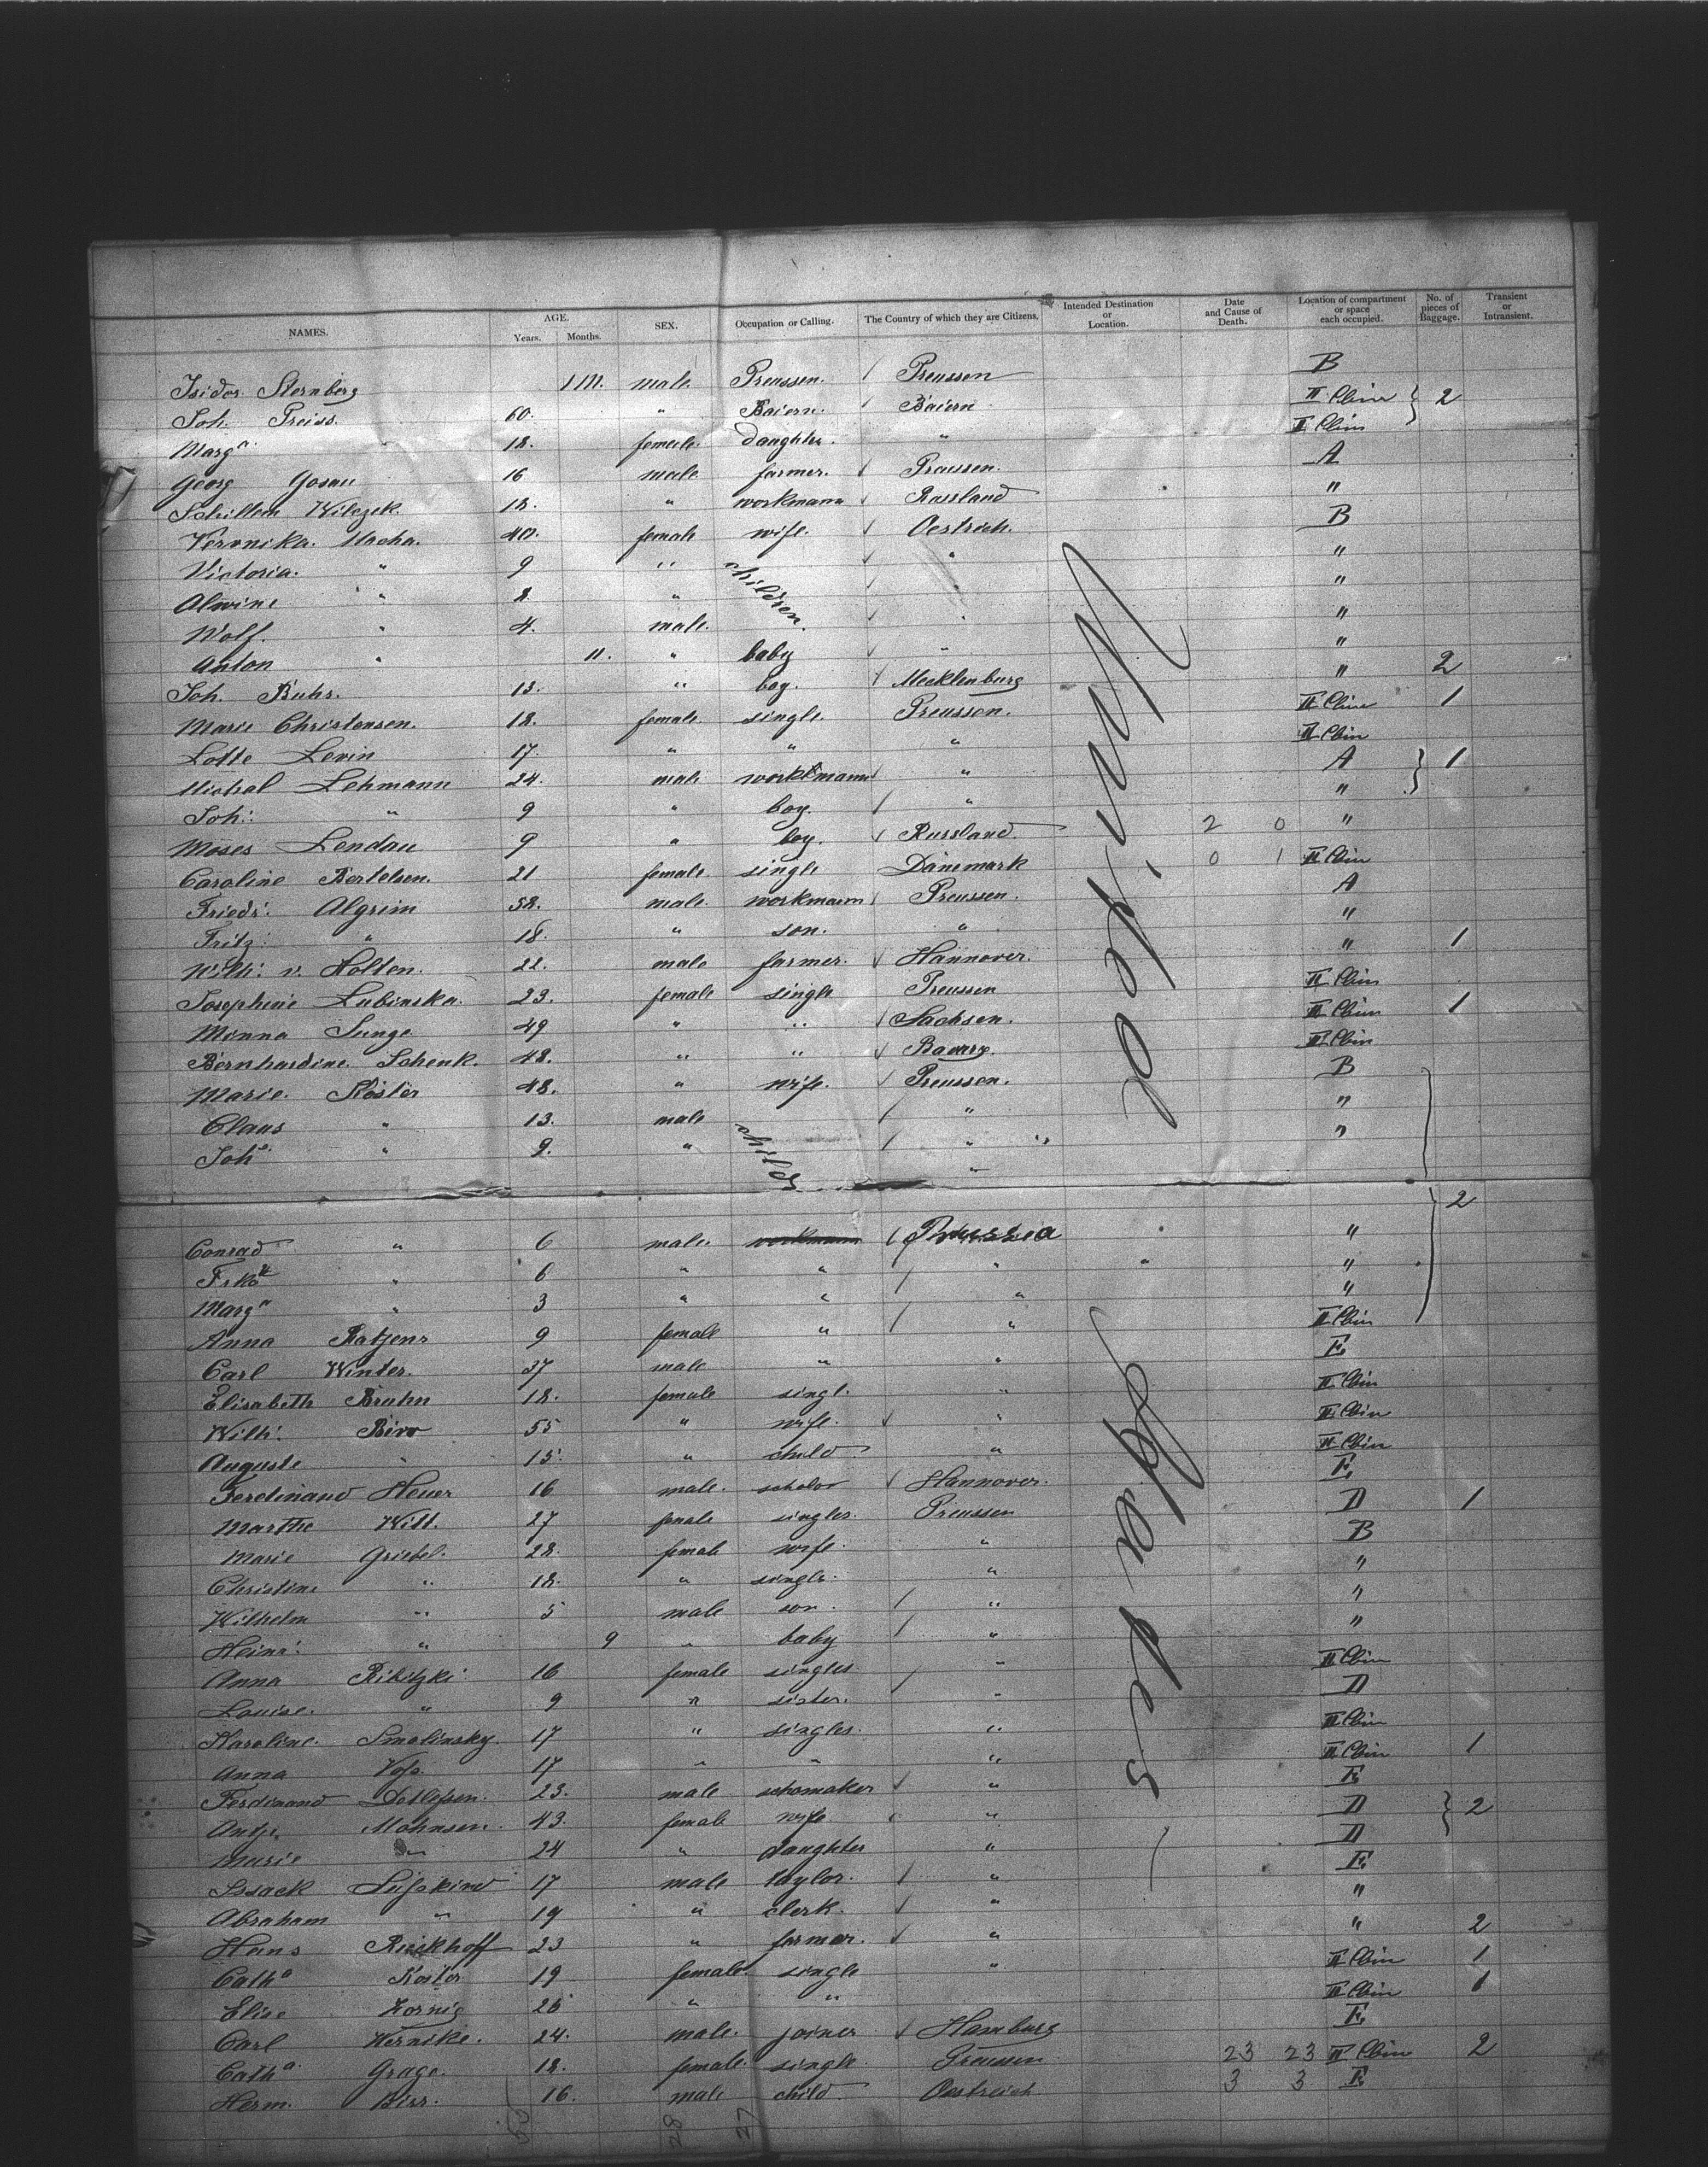 NAMES. AGE. Years. Months. SEX. Occupation or Calling. The Country of which they are Citizens. Intended Destination or Location. Date and Cause of Death. Location of compartment or space each occupied. No. of pieces of Baggage. Transient or Intransient.
Isidor Sternberg 1 M. male Preussen. / Preussen B
Joh. Preiss. 60. " Baiern. Baiern II Cbin } 2
Marg a " 18. female. daughter. " II Cbin
Georg Gosau 16 male farmer. Preussen. A
Wilczek. 18. " workmann Russland "
Veronika. Macha. 40. female wife. Oestreich. B
Victoria. " 9 " children. " "
Alwine " 8 " "
Wolf. " 4. male. "
Anton " 11. " baby " "
Joh. Buhr. 13. " boy. Mecklenburg " 2
Marie Christensen. 18. female. single. Preussen. II Cbin 1
Lotte Levin 17. " " " II Cbin
Michal Lehmann 24. male workmann " A } 1
Joh: " 9 " boy. / " "
Moses Lendau 9 " boy. Russland. 2 0 "
Caroline Bertelsen. 21 female single Dänemark 0 1 II Cbin
Friedr: Algrim 58. male. workmann Preussen. A
Fritz: " 18. " son. " "
Wilh: v. Holten. 22. male farmer. Hannover. " 1
Josephine Lubinska. 23. female single Preussen II Cbin
Minna Sunge 49 " " Sachsen. II Cbin 1
Bernhardine. Schenk. 48. " " Bavary. II Cbin
Marie. Köster 48. " wife. Preussen. B
Claus " 13. male childr / " "
Joh s. " 9. " / " "
2
Conrad " 6 male. workmann / Prussia "
" 6 " " / " "
Marg a " 3 " " / " "
Anna Ratjens 9 female " / " II Cbin
Carl Winter. 37 male " " E
Elisabeth Bruhn 18. female singl. " II Cbin
Wilh: 55 " wife. " II Cbin
Auguste " 15. " child " II Cbin
Ferdinand Heuer 16 male. scholar Hannover. E
Marthe Witt. 27 female singles. Preussen D 1
Marie Griebel. 28. female wife. " B
Christine " 18. " single. " "
Wilhelm " 5 male son. / " "
Heinr: " 9 " baby / " "
Anna Ribitzki. 16 female singles / " II Cbin
Louise. " 9 " sister. " D
Karoline. Smolinsky. 17 " singles. " II Cbin
Anna Voss. 17 " " " II Cbin 1
Ferdinand Detlefsen. 23. male schomaker " E
Antje Mohnsen. 43. female wife " D } 2
Marie " 24 " daughter " D
Issack Süsskind 17 male taylor. / " E
Abraham " 19 " clerk. " "
Hans Rieckhoff 23 " farmer. " " 2
Cath a Köster 19 female. single " II Cbin 1
Elise Kornig 26 " " II Cbin 1
Carl Wernike. 24. male. joiner Hamburg E
Cath a. Grage. 18. female. single. Preussen 23 23 II Cbin 2
Herm. Birr. 16. male child Oestreich 3 3 E
55 28 27